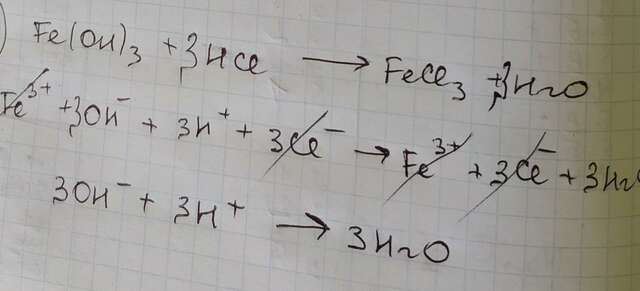 ) Fe(OH)₃ + 3HCl → FeCl₃ + 3H₂O
Fe³⁺ + 3OH⁻ + 3H⁺ + 3Cl⁻ → Fe³⁺ + 3Cl⁻ + 3H₂O
3OH⁻ + 3H⁺ → 3H₂O